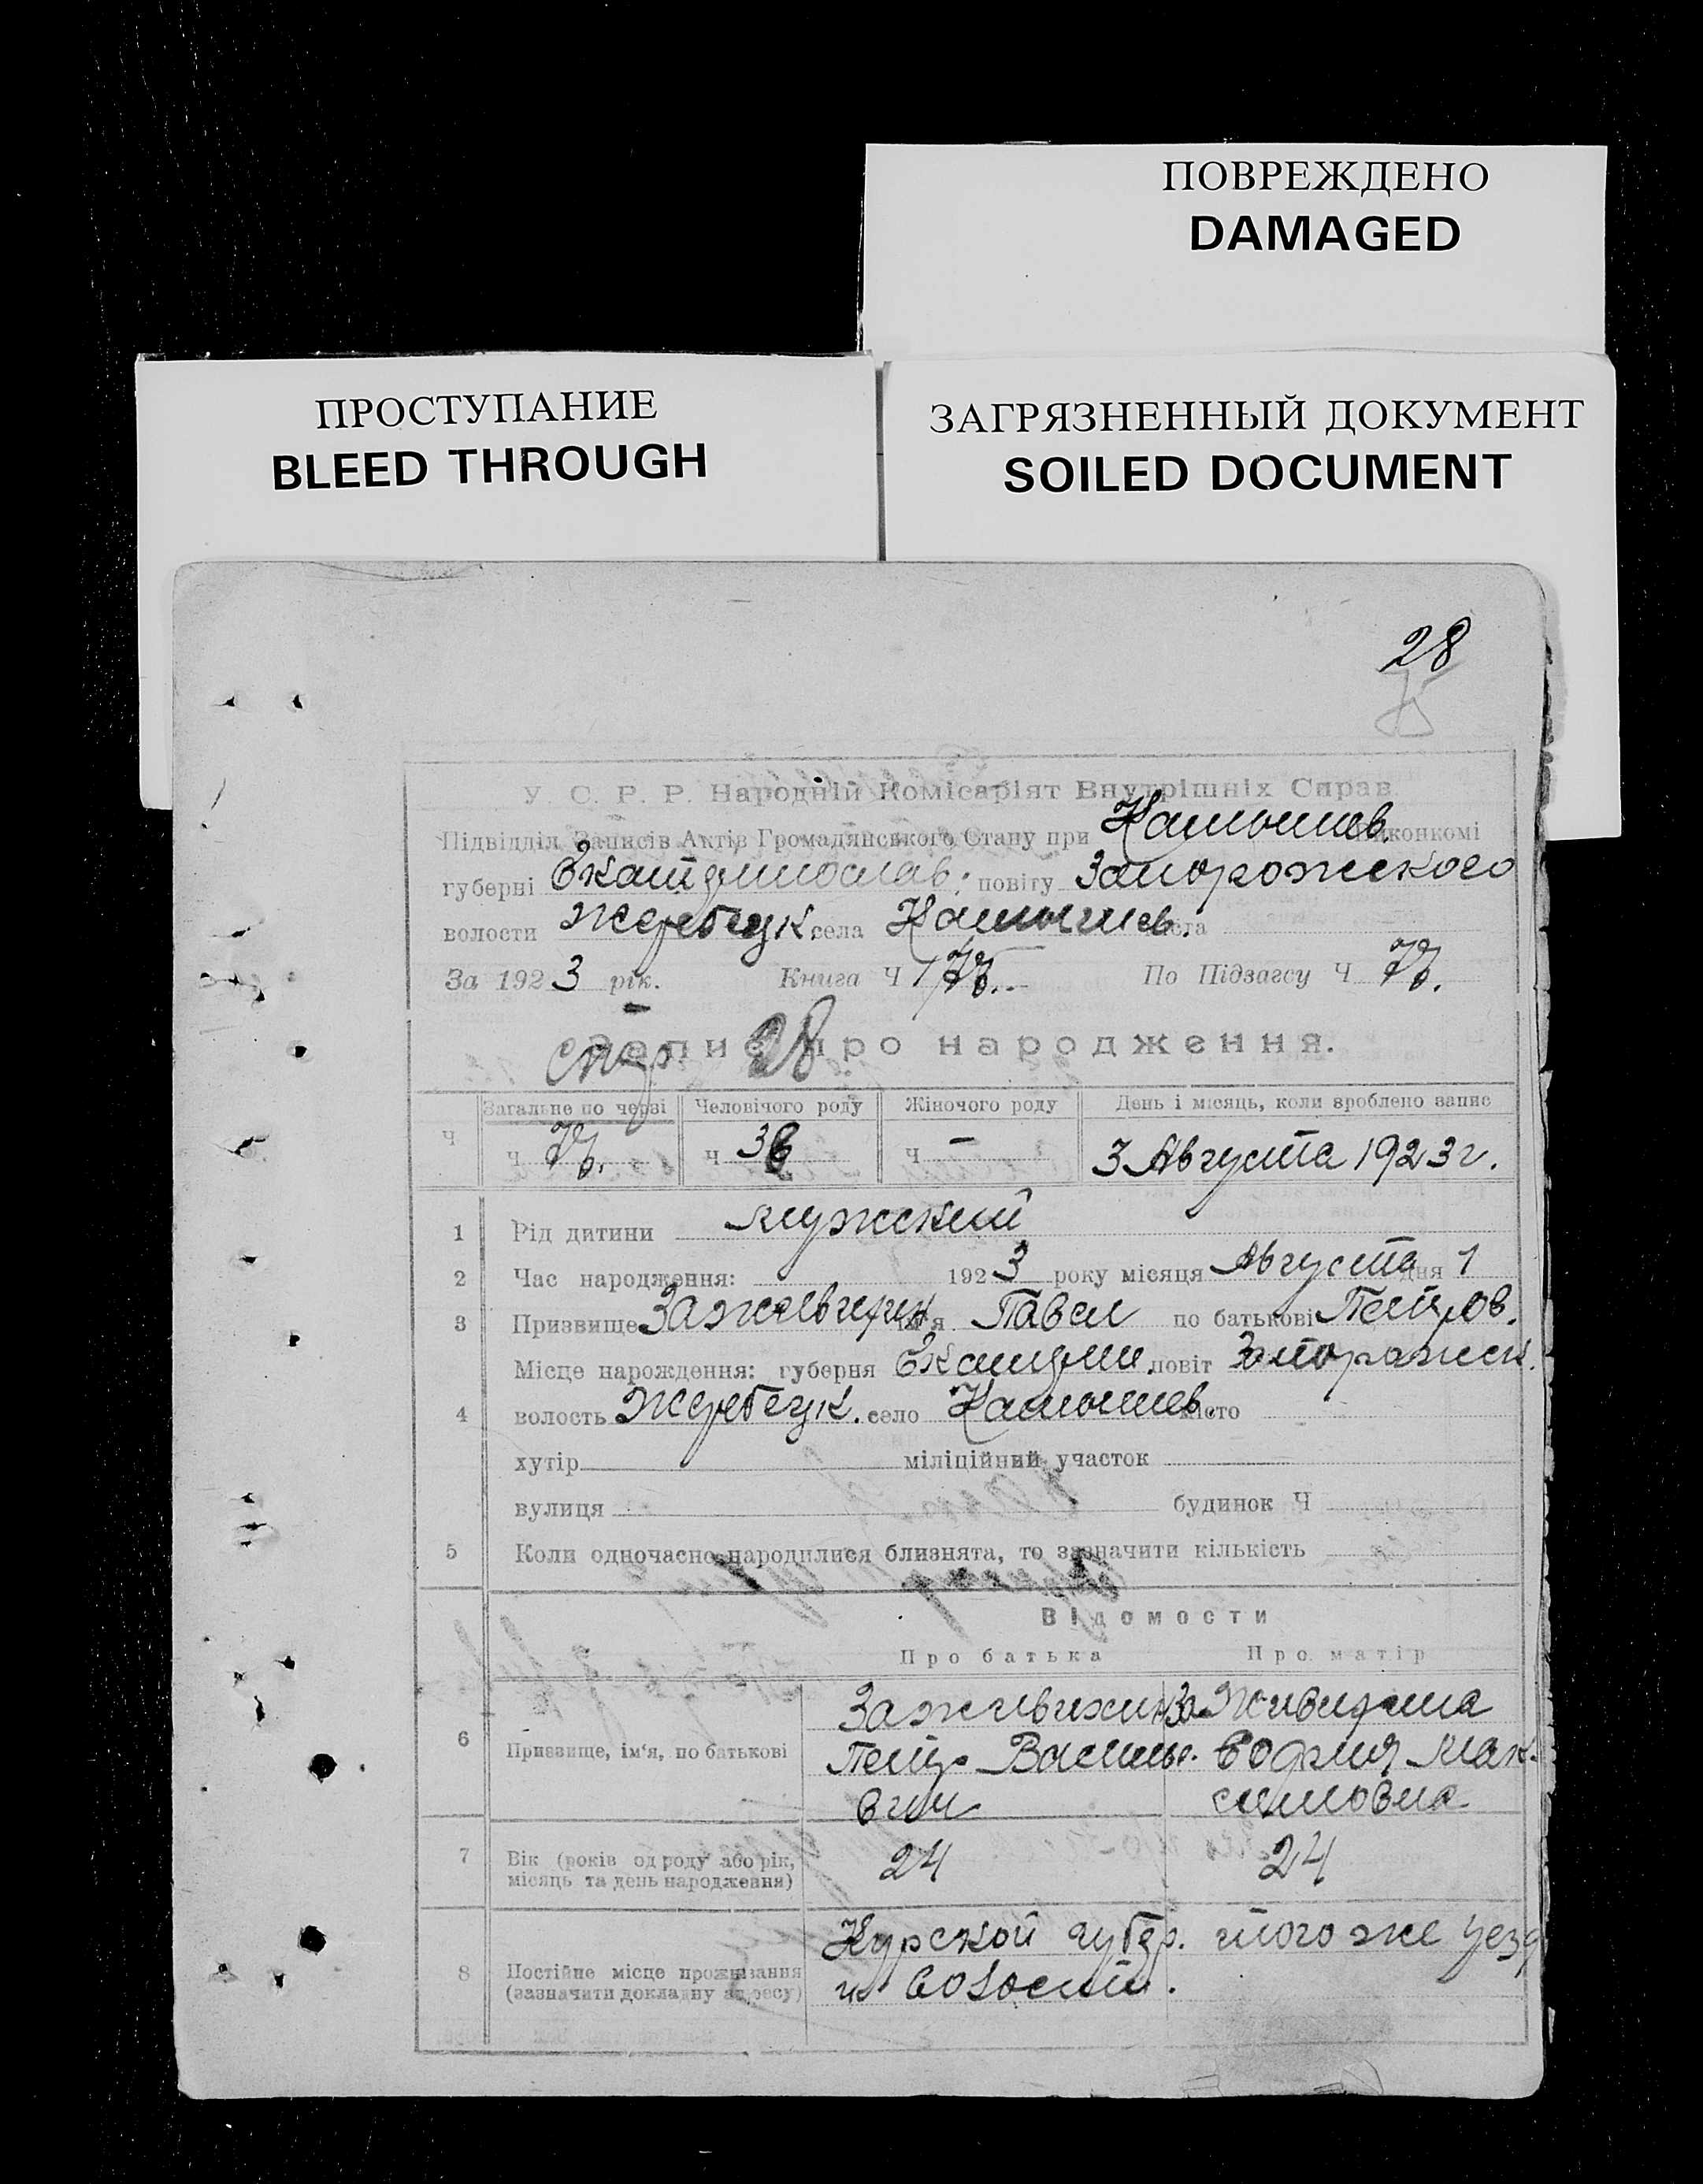 ПОВРЕЖДЕНО
DAMAGED
ПРОСТУПАНИЕ
BLEED THROUGH
ЗАГРЯЗНЕННЫЙ ДОКУМЕНТ
SOILED DOCUMENT
28
У. С. Р. Р. Народній Комісаріят Внутрішніх Справ
Підвідділ Записів Актів Громадянського Стану при Камышев. виконкомі
губерні Екатеринослав. повіту Запорожского
волости Жеребецк. села Камышев. міста
За 1923 рік. Книга Ч По Підзагсу Ч
Запис про народження.
стр. 28
Загальне по черзі Человічого роду Жіночого роду День і місяць, коли зроблено запис
Ч Ч Ч Ч — 3 Августа 1923 г.
1 Рід дитини мужский
2 Час народження: 1923 року місяця Августа дня 1
3 Призвище ім'я Павел по батькові Петров.
Місце нарождення: губерня Екатерин. повіт Запорожск.
4 волость Жеребецк. село Камышев. місто
хутір міліційний участок
вулиця будинок Ч
5 Коли одночасно народилися близнята, то зазначити кількість
Відомости
Про батька Про матір
6 Призвище, ім'я, по батькові
Петр Василье- София Мак-
вич симовна
7 Вік (років од роду або рік, 24 24
місяць та день народження)
Курской губер. того же уезд
8 Постійне місце проживання и волости.
(зазначити докладну адресу)